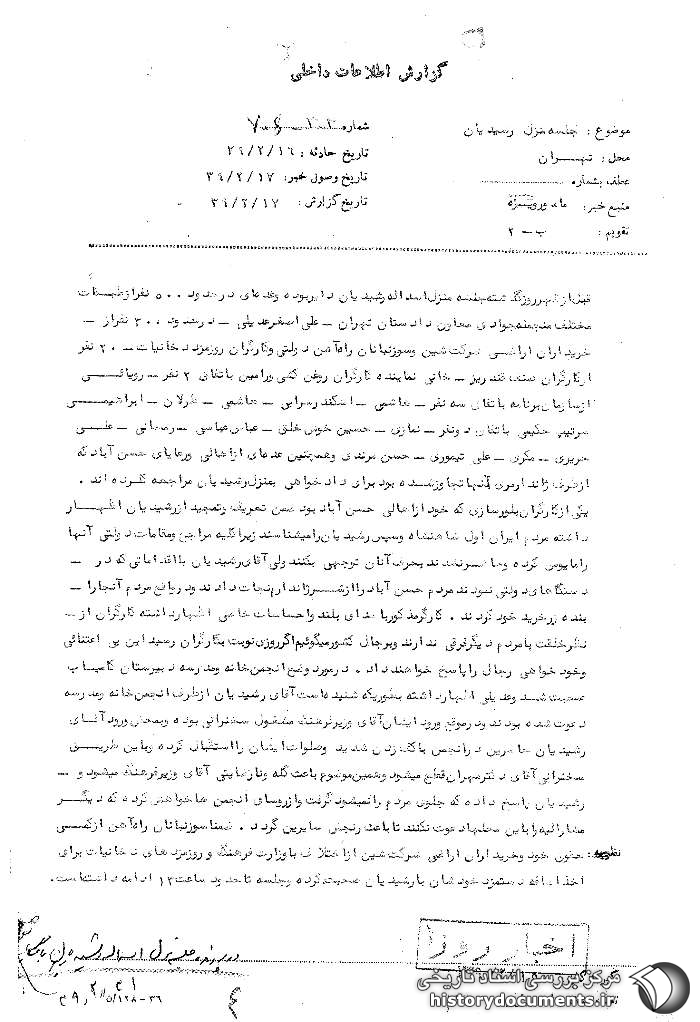 گزارش اطلاعات داخلی
موضوع : جلسه منزل رشیدیان
شماره
محل : تهران
تاریخ حادثه : ۳۹/۲/۱۶
عطف بشماره
تاریخ وصول خبر: ۳۹/۲/۱۷
منبع خبر: مامور ویژه
تاریخ گزارش : ۳۹/۲/۱۷
تقویم : ب - ۲
قبل از ظهر روز گذشته جلسه منزل اسداله رشیدیان دایر بوده و عده‌ای در حدود ۵۰۰ نفر از طبقات
مختلف منجمله جوادی معاون دادستان تهران – علی اصغر عدیلی – در حدود ۳۰۰ نفر از –
خریداران اراضی شرکت شین و سوزنبانان راه‌آهن دولتی و کارگران روزمزد دخانیات – ۲۰ نفر
از کارگران صنف قندریز – خانی نماینده کارگران روغن کشی ورامین باتفاق ۲ نفر –
از سازمان برنامه باتفاق سه نفر – هاشمی – اسکندر سرابی – هاشمی – طرلان – ابراهیمی
سرتیپ حکیمی باتفاق دو نفر – نمازی – حسین خوش خلق – عباس عباسی – رمضانی – علی
حریری – مکری – علی تیموری – حسن مرندی و همچنین عده‌ای از اهالی و رعایای حسن آباد که
از طرف ژاندارمری بآنها تجاوز شده بود برای دادخواهی بمنزل رشیدیان مراجعه کرده اند .
یکی از کارگران بلورسازی که خود از اهالی حسن آباد بود ضمن تعریف و تمجید از رشیدیان اظهار
داشته مردم ایران اول شاهنشاه و سپس رشیدیان را میشناسند زیرا کلیه مراجع و مقامات دولتی آنها
را مایوس کرده و حاضر نشدند بحرف آنان توجهی بکنند ولی آقای رشیدیان با اقداماتی که در –
دستگاههای دولتی نمودند مردم حسن آباد را از شر ژاندارم نجات دادند و در واقع مردم آنجا را –
بنده زرخرید خود کردند . کارگر مذکور با صدای بلند و احساسات خاصی اظهار داشته کارگران از –
نظر خلقت با مردم دیگر فرقی ندارند و برجال کشور میگوئیم اگر روزی نوبت بکارگران رسید این بی اعتنائی
و خودخواهی رجال را پاسخ خواهند داد . در مورد وضع انجمن خانه و مدرسه دبیرستان کامیاب
صحبت شد و عدیلی اظهار داشته بطوریکه شنیده است آقای رشیدیان از طرف انجمن خانه و مدرسه
دعوت شده بودند و در موقع ورود ایشان آقای وزیر فرهنگ مشغول سخنرانی بوده و بمحض ورود آقای
رشیدیان حاضرین در انجمن با کف زدن شدید و صلوات ایشان را استقبال کرده و باین طریق
سخنرانی آقای دکتر مهران قطع میشود و همین موضوع باعث گله و نارضایتی آقای وزیر فرهنگ میشود و –
رشیدیان پاسخ داده که جلوی مردم را نمیشود گرفت و از روسای انجمن ها خواهش کرده که دیگر
مشارالیه را باین محلها دعوت نکنند تا باعث رنجش سایرین گردد . ضمنا سوزنبانان راه‌آهن از کمی
حقوق خود و خریداران اراضی شرکت شین از اختلاف با وزارت فرهنگ و روزمزدهای دخانیات برای
نظریه :
اخذ اضافه دستمزد خودشان با رشیدیان صحبت کرده و جلسه تا حدود ساعت ۱۲ ادامه داشته است .
اخبار روز
مرکز بررسی اسناد تاریخی
historydocuments.ir